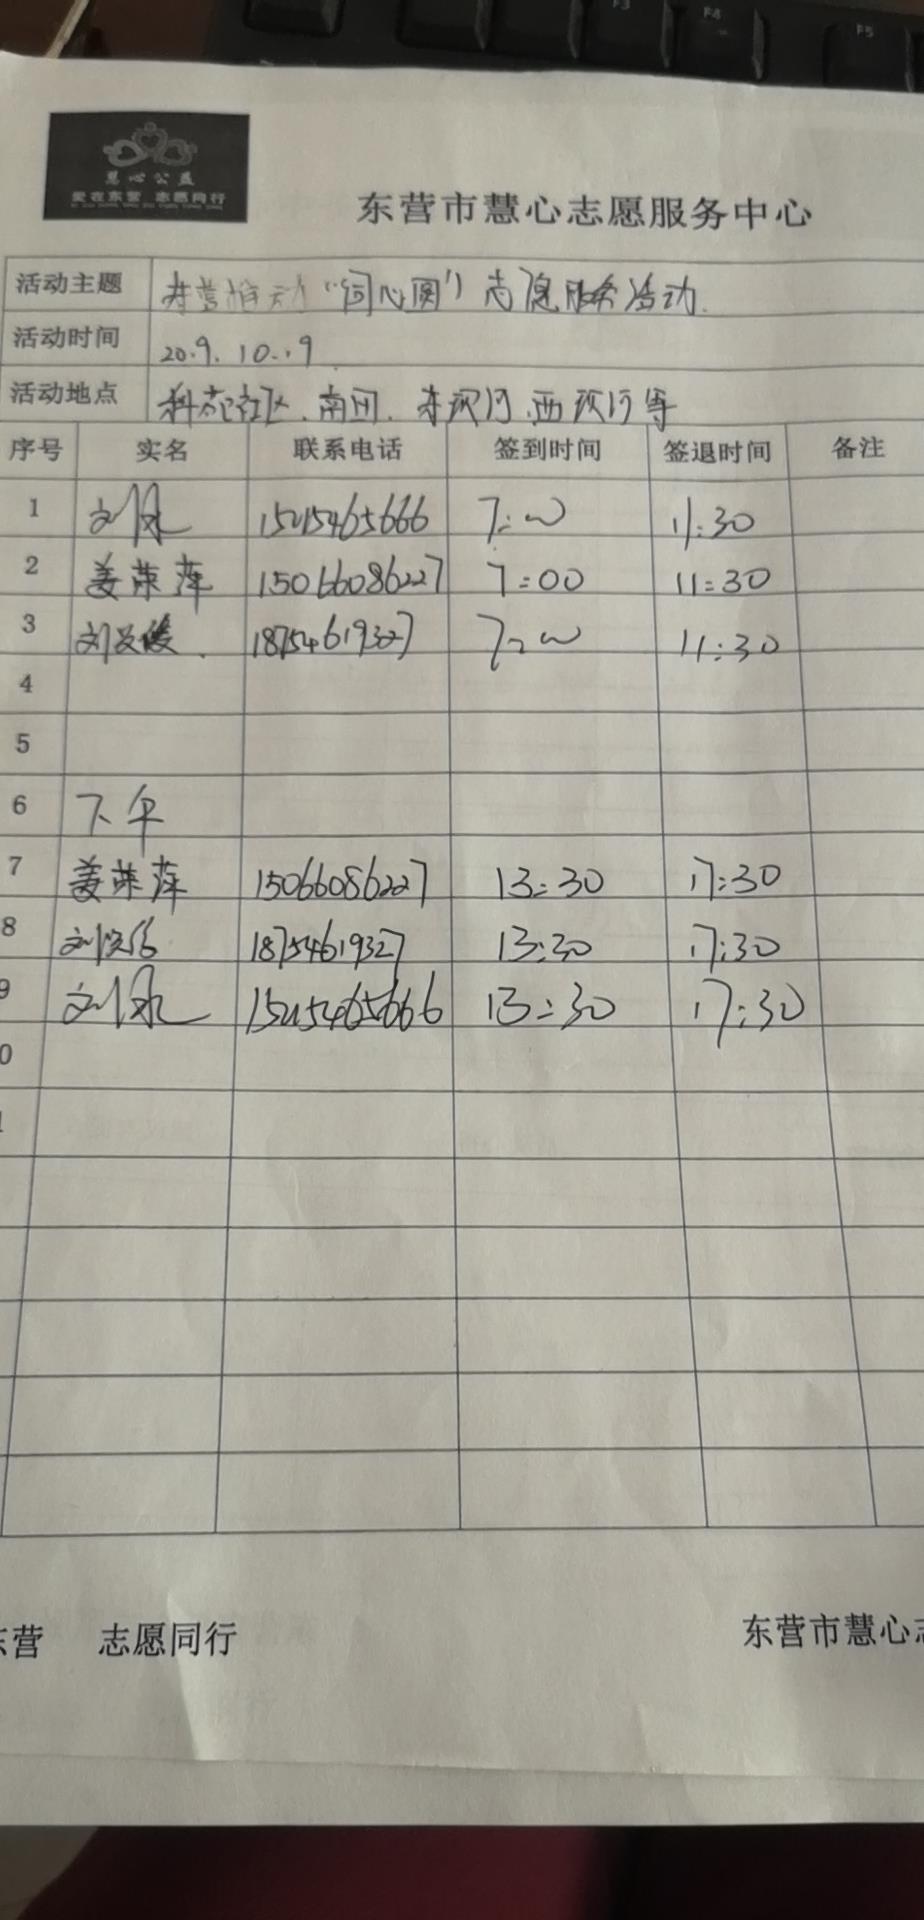 F3 F4 F5
慧心公益
爱在东营 志愿同行
东营市慧心志愿服务中心
活动主题 东营推动“同心圆”志愿服务活动.
活动时间 2019.10.19
活动地点 社区.南河.东 .西 等
序号 实名 联系电话 签到时间 签退时间 备注
1 刘 15215465666 7:00 11:30
2 姜萍萍 15066086227 7:00 11:30
3 刘 18754619327 7:00 11:30
4
5
6 下午
7 姜萍萍 15066086227 13:30 17:30
8 刘 18754619327 13:30 17:30
9 刘 15215465666 13:30 17:30
0
东营 志愿同行 东营市慧心志